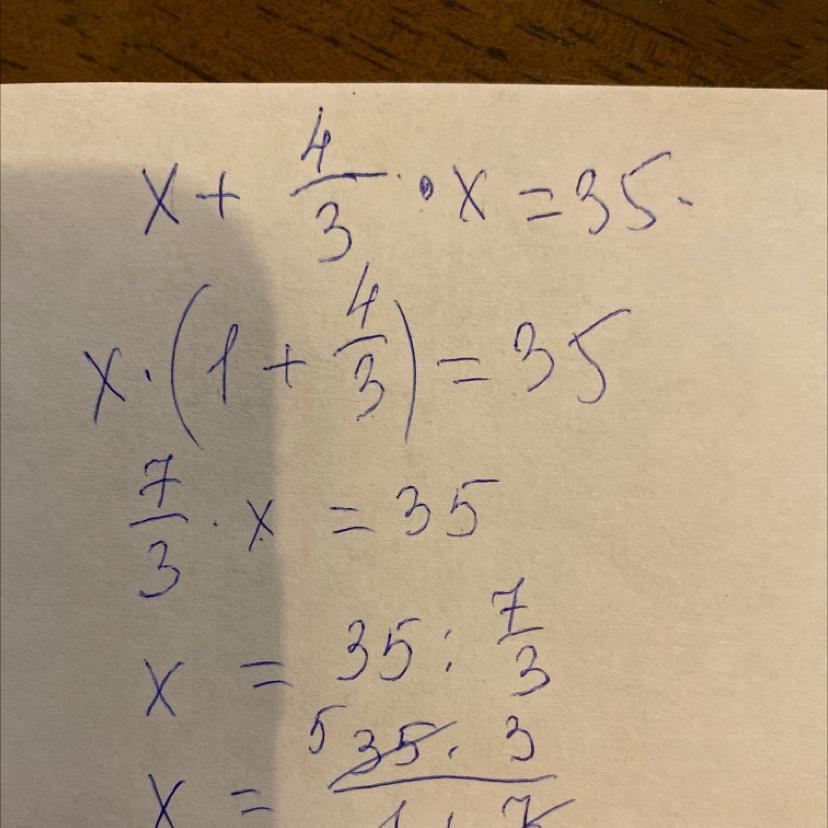 x + 4/3 · x = 35.
x · (1 + 4/3) = 35
7/3 · x = 35
x = 35 : 7/3
x = 5 35 · 3 / 1 · 7